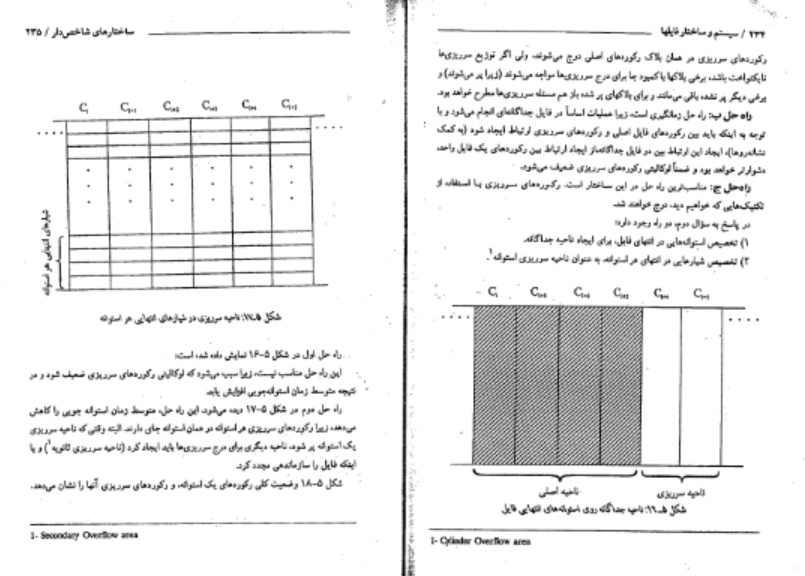 ۲۳۴ / سیستم و ساختار فایلها
رکوردهای سرریزی در همان بلاک رکوردهای اصلی درج می‌شوند، ولی اگر توزیع سرریزی‌ها
نایکنواخت باشد، برخی بلاکها باکمبود جا برای درج سرریزی‌ها مواجه می‌شوند (زیرا پر می‌شوند) و
برخی دیگر پر نشده باقی می‌مانند و برای بلاکهای پر شده باز هم مسئله سرریزی‌ها مطرح خواهد بود.
راه حل ب: راه حل زمانگیری است، زیرا عملیات اساساً در فایل جداگانه‌ای انجام می‌شود و با
توجه به اینکه باید بین رکوردهای فایل اصلی و رکوردهای سرریزی ارتباط ایجاد شود (به کمک
نشانه‌روها)، ایجاد این ارتباط بین دو فایل جداگانه‌از ایجاد ارتباط بین رکوردهای یک فایل واحد،
دشوارتر خواهد بود و ضمناً لوکالیتی رکوردهای سرریزی ضعیف می‌شود.
راه‌حل ج: مناسب‌ترین راه حل در این ساختار است. رکوردهای سرریزی با استفاده از
تکنیک‌هایی که خواهیم دید، درج خواهند شد.
در پاسخ به سؤال دوم، دو راه وجود دارد:
۱) تخصیص استوانه‌هایی در انتهای فایل، برای ایجاد ناحیه جداگانه.
۲) تخصیص شیارهایی در انتهای هر استوانه، به عنوان ناحیه سرریزی استوانه۱.
ناحیه اصلی ناحیه سرریزی
شکل ۵ـ۱۶: ناحیه جداگانه روی استوانه‌های انتهایی فایل
1- Cylinder Overflow area
ساختارهای شاخص‌دار / ۲۳۵
شیارهای انتهایی هر استوانه
شکل ۵ـ۱۷: ناحیه سرریزی در شیارهای انتهایی هر استوانه
راه حل اول در شکل ۵-۱۶ نمایش داده شده است:
این راه حل مناسب نیست، زیرا سبب می‌شود که لوکالیتی رکوردهای سرریزی ضعیف شود و در
نتیجه متوسط زمان استوانه‌جویی افزایش یابد.
راه حل دوم در شکل ۵-۱۷ دیده می‌شود. این راه حل، متوسط زمان استوانه جویی را کاهش
می‌دهد، زیرا رکوردهای سرریزی هر استوانه در همان استوانه جای دارند. البته وقتی که ناحیه سرریزی
یک استوانه پر شود، ناحیه دیگری برای درج سرریزی‌ها باید ایجاد کرد (ناحیه سرریزی ثانویه۱) و یا
اینکه فایل را سازماندهی مجدد کرد.
شکل ۵-۱۸ وضعیت کلی رکوردهای یک استوانه، و رکوردهای سرریزی آنها را نشان می‌دهد.
1- Secondary Overflow area